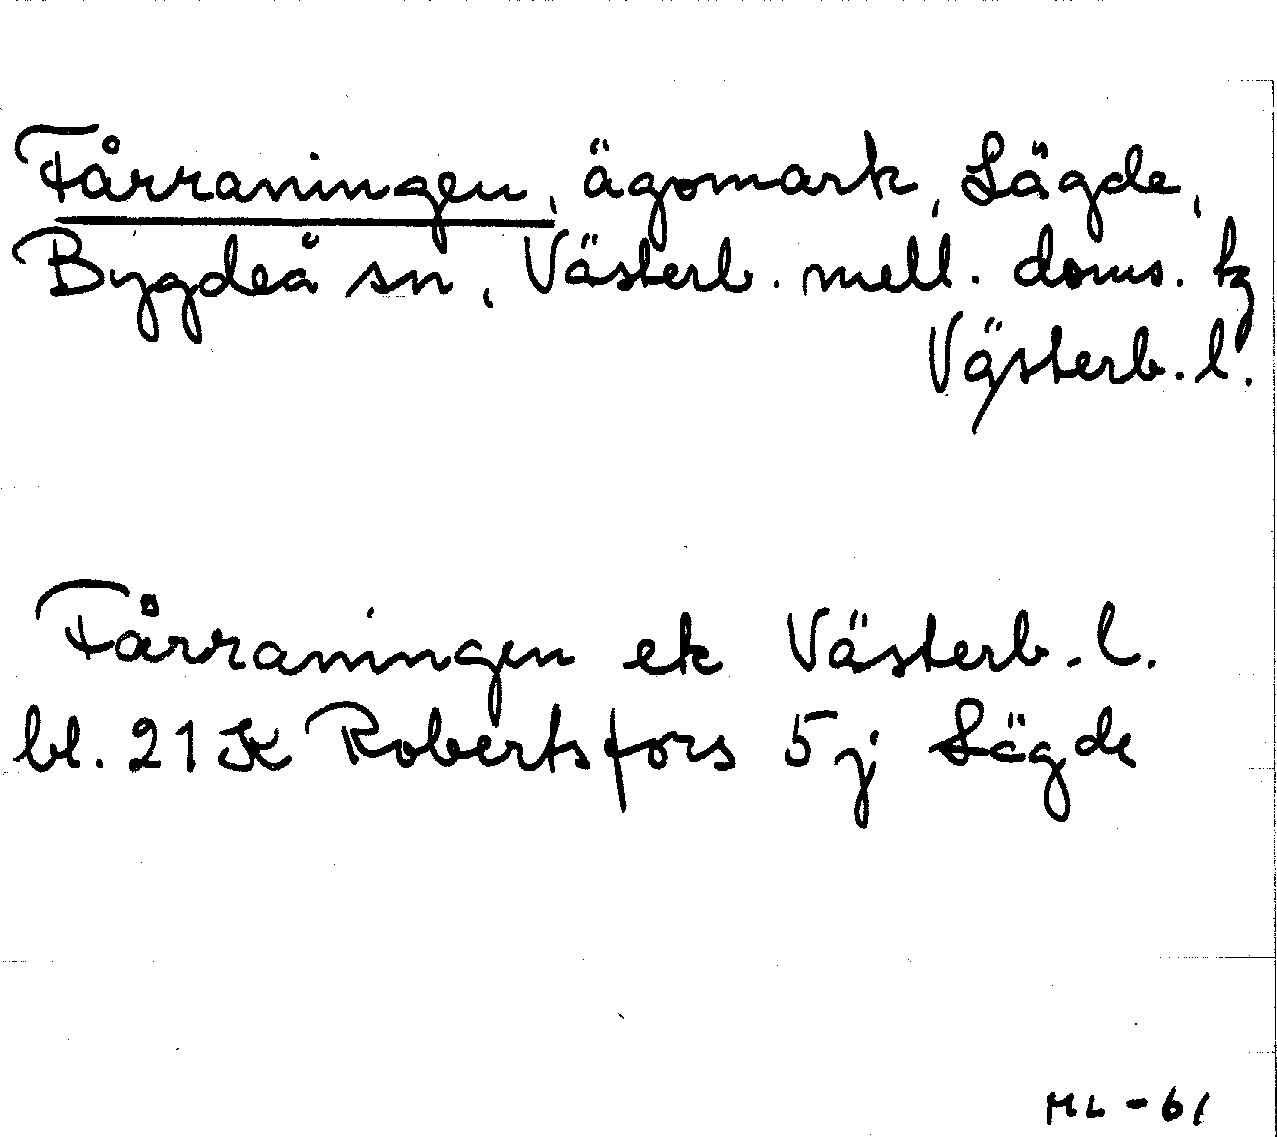 Fårraningen, ägomark, Sägde,
Bygdeå sn, Västerb. mell. doms. tg
Västerb. l.
Fårraningen ek Västerb. l.
bl. 21 K Robertsfors 5 j Sägde
ML - 61